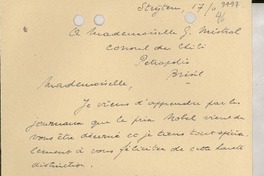 A Mademoiselle G. Mistral
Consul du Chili
Petropolis
Brésil
Mademoiselle,
Je viens d'apprendre par les
journaux que le prix Nobel vient de
vous être décerné et je tiens tout spécia-
lement à vous féliciter de cette haute
distinction.